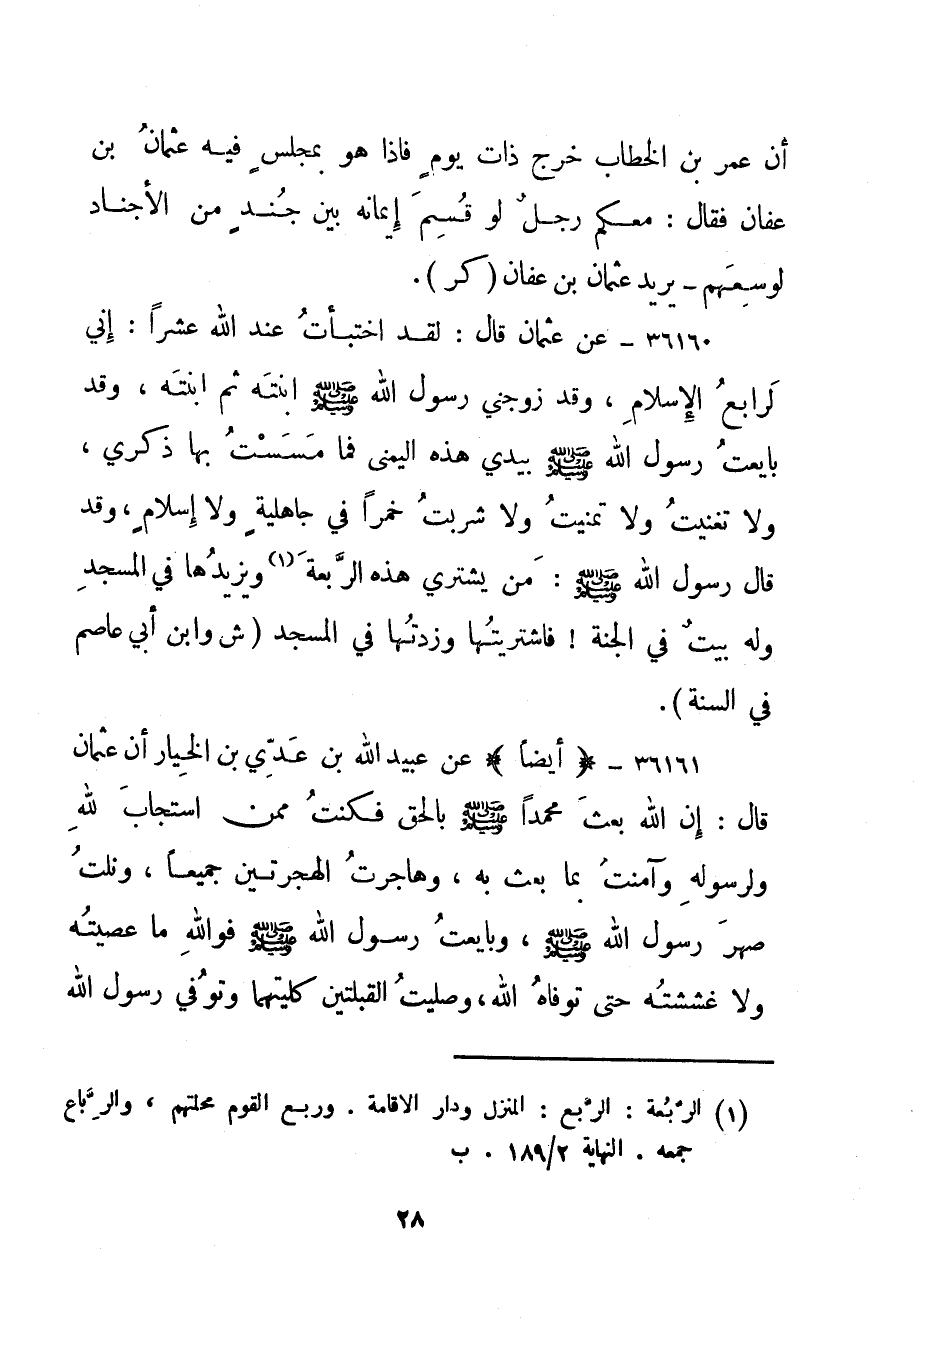 أن عمر بن الخطاب خرج ذات يومٍ فاذا هو بمجلسٍ فيه عثمانُ بن
عفان فقال : معكم رجلٌ لو قُسِمَ إيمانه بين جُندٍ من الأجناد
لوسِعَهم ـ يريد عثمان بن عفان ( كر ) .
٣٦١٦٠ ـ عن عثمان قال : لقد اختبأتُ عند الله عشراً : إني
لَرابعُ الإِسلامِ ، وقد زوجني رسول الله ﷺ ابنتَه ثم ابنتَه ، وقد
بايعتُ رسول الله ﷺ بيدي هذه اليمنى فما مَسَسْتُ بها ذكري ،
ولا تغنيتُ ولا تمنيتُ ولا شربتُ خمراً في جاهليةٍ ولا إسلامٍ ، وقد
قال رسول الله ﷺ : مَن يشتري هذه الرَّبعةَ (١) ويزيدُها في المسجدِ
وله بيتٌ في الجنة ! فاشتريتُها وزدتُها في المسجد ( ش وابن أبي عاصم
في السنة ) .
٣٦١٦١ ـ ﴿ أيضاً ﴾ عن عبيد الله بن عَدّيِ بن الخيار أن عثمان
قال : إن الله بعثَ محمداً ﷺ بالحق فكنتُ ممن استجابَ للهِ
ولرسولهِ وآمنتُ بما بعث به ، وهاجرتُ الهجرتين جميعاً ، ونلتُ
صهرَ رسول الله ﷺ ، وبايعتُ رسول الله ﷺ فواللهِ ما عصيتُه
ولا غششتُه حتى توفاهُ الله ، وصليتُ القبلتين كليتهما وتوُفي رسول الله
(١) الرَّبْعة : الرَّبع : المنزل ودار الاقامة . وربع القوم محلتهم ، والرِّباع
جمعه . النهاية ١٨٩/٢ . ب
٢٨